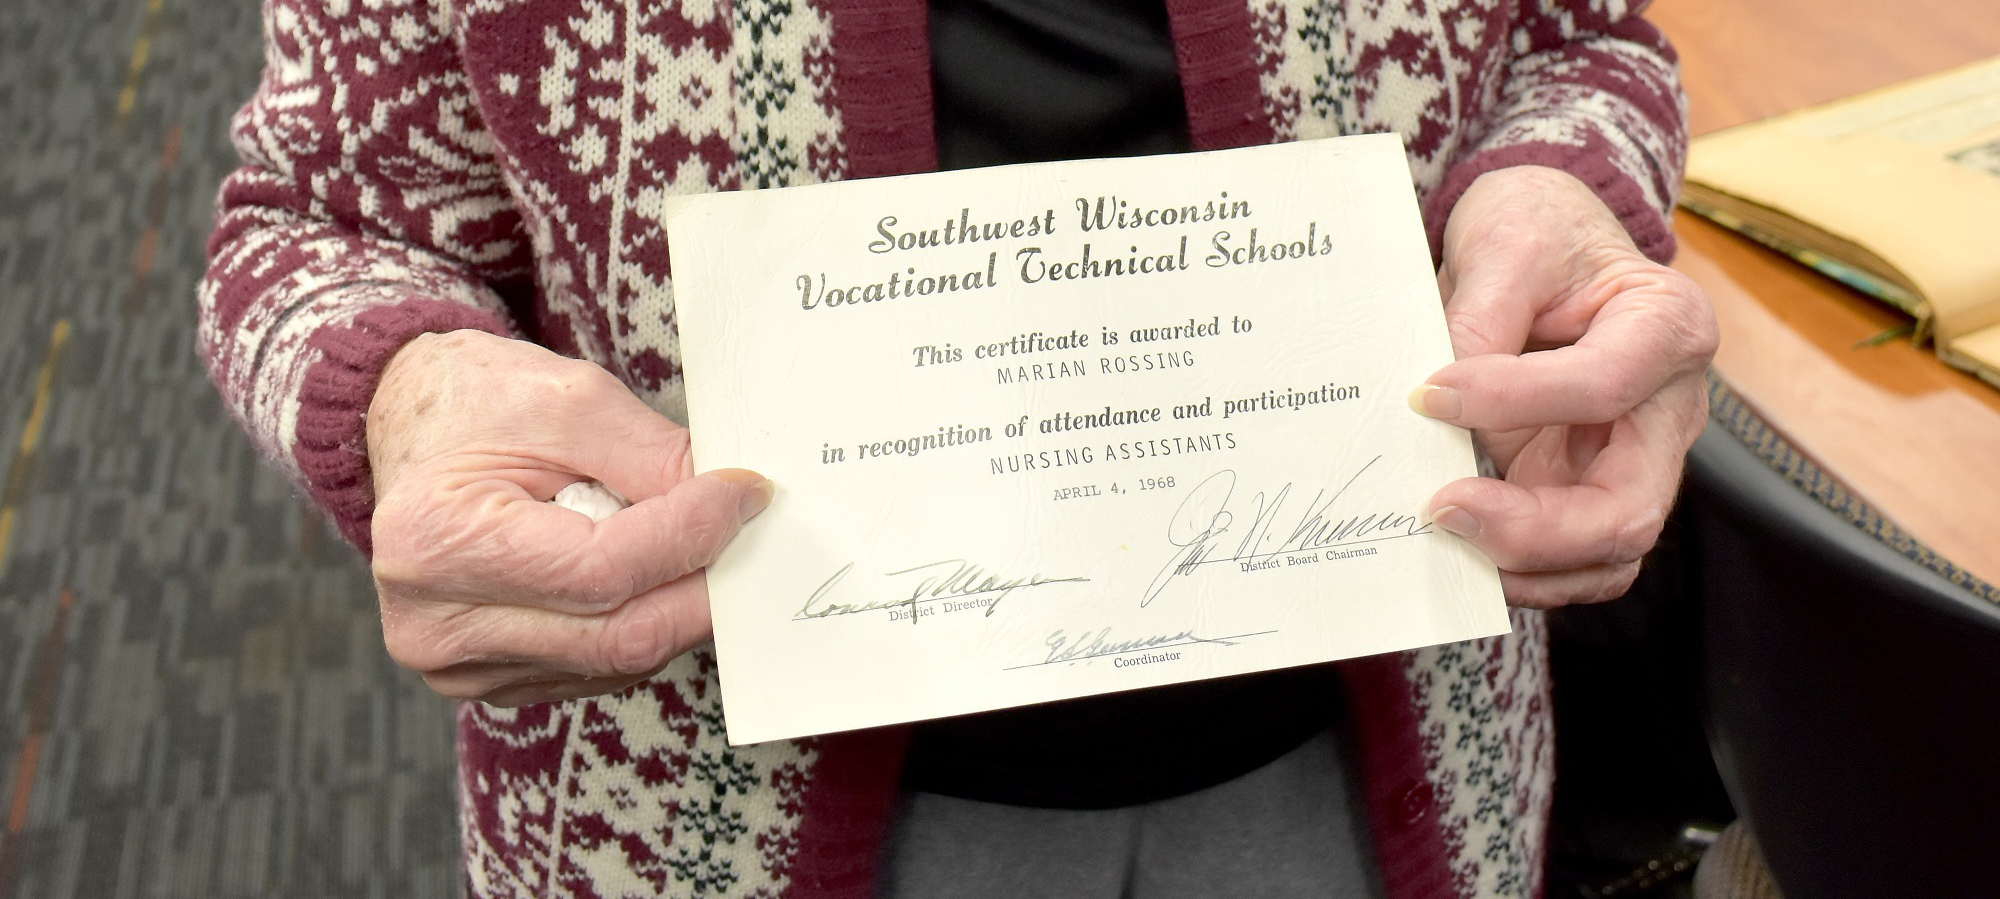 Southwest Wisconsin
Vocational Technical Schools
This certificate is awarded to
MARIAN ROSSING
in recognition of attendance and participation
NURSING ASSISTANTS
APRIL 4, 1968
District Board Chairman
District Director
Coordinator